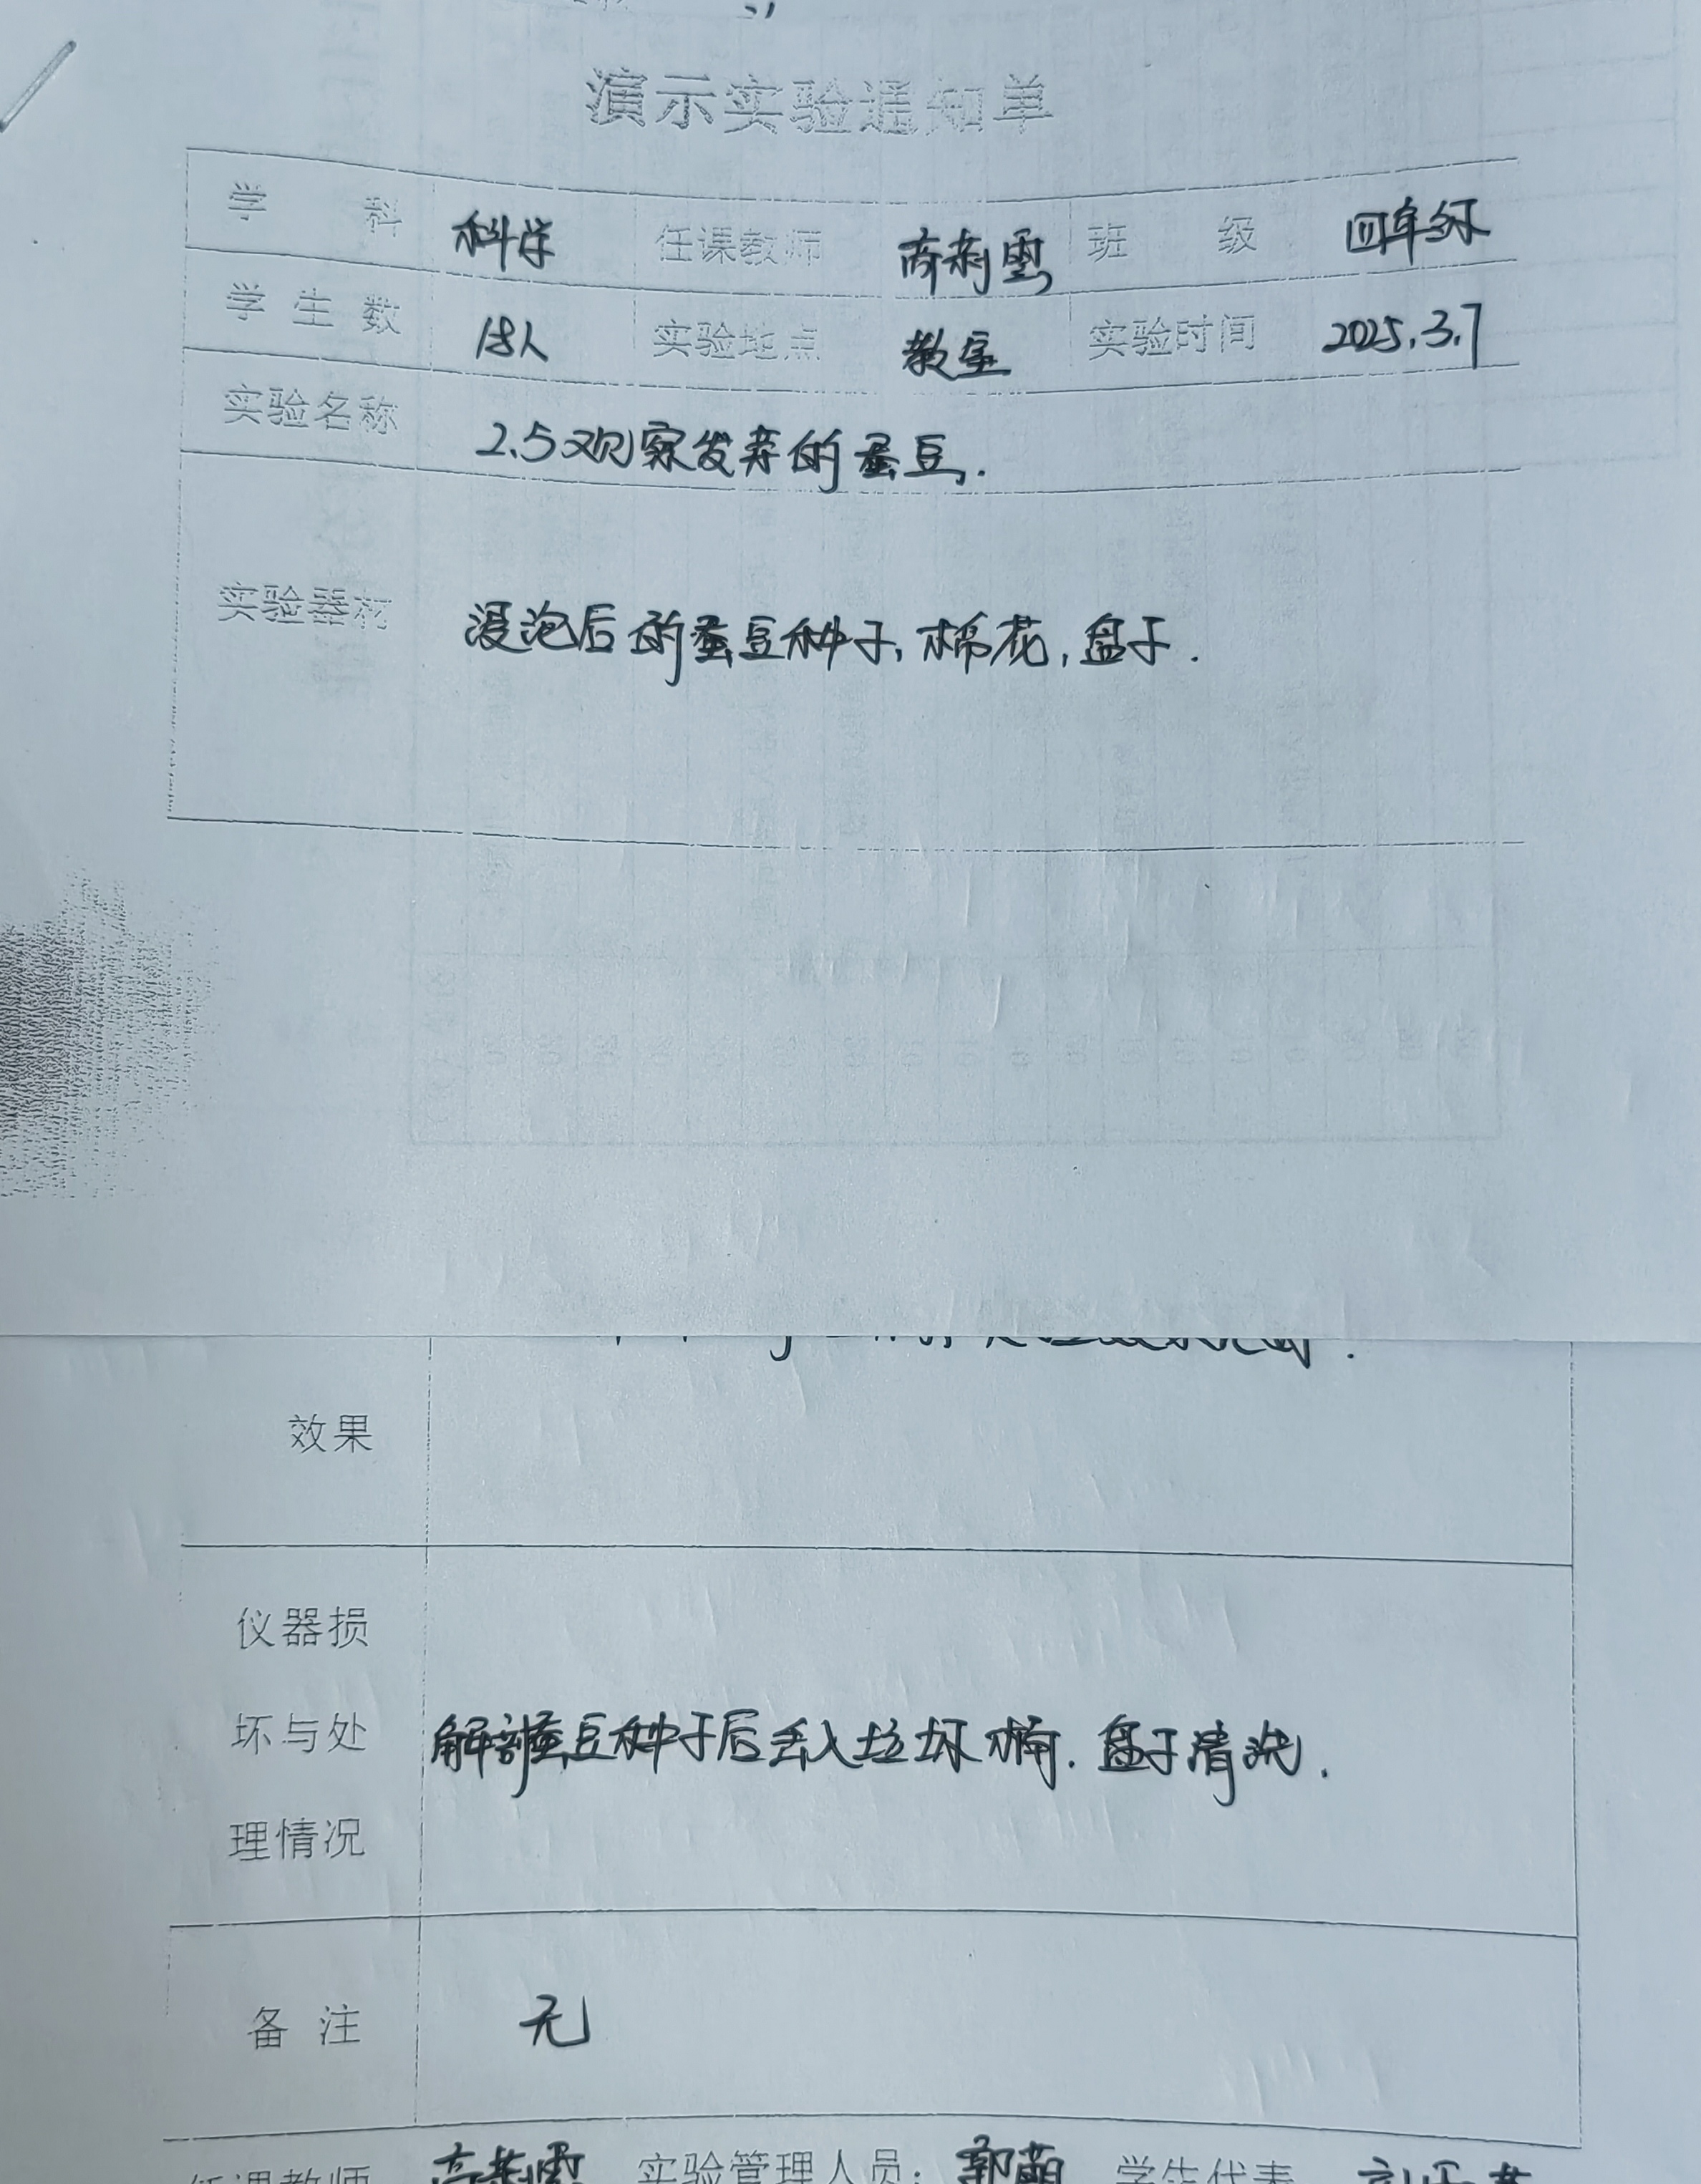 演示实验通知单
学 科 科学 任课教师 班 级 四年级
学生数 18人 实验地点 教室 实验时间 2025.3.7
实验名称 2.5观察发芽的蚕豆.
实验器材 浸泡后的蚕豆种子,棉花,盘子.
效果
仪器损
坏与处 解剖蚕豆种子后丢入垃圾桶.盘子清洗.
理情况
备 注 无
任课教师 实验管理人员: 郭萌 学生代表